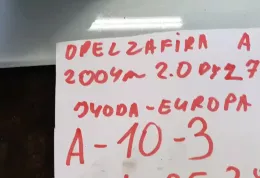 OPEL ZAFIRA A
2004m 2.0 DYZ 7
JYODA-EUROPA
A-10-3